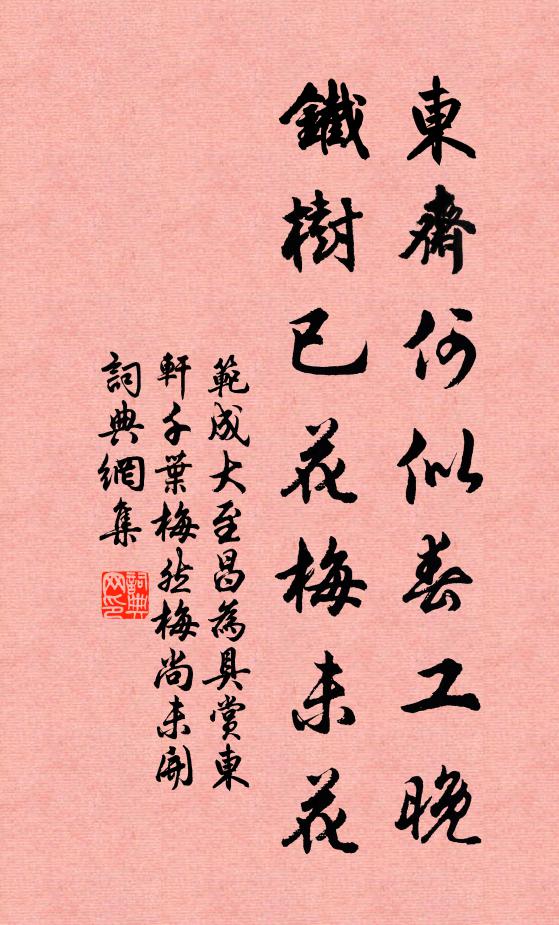 東齋何似春工晚
鐵樹已花梅未花
範成大至昌為具賞東
軒千葉梅然梅尚未開
詞典網集
詞典网印